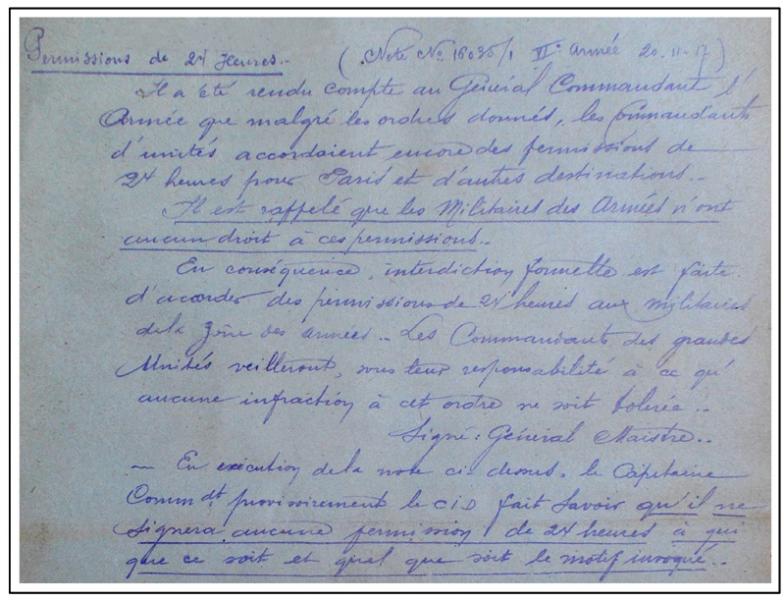 Permissions de 24 Heures.. (Note No 16035/1 VIe Armée 20.11-17)
Il a été rendu compte au Général Commandant l'
Armée que malgré les ordres donnés, les Commandants
d'unités accordaient encore des permissions de
24 heures pour Paris et d'autres destinations..
Il est rappelé que les Militaires des Armées n'ont
aucun droit à ces permissions..
En conséquence, interdiction formelle est faite
d'accorder des permissions de 24 heures aux militaires
de la Zône des armées.. Les Commandants des grandes
Unités veilleront, sous leur responsabilité à ce qu'
aucune infraction à cet ordre ne soit tolérée..
Signé : Général Maistre..
— En exécution de la note ci-dessus. le Capitaine
Commdt provisoirement le CID fait savoir qu'il ne
signera aucune permission de 24 heures à qui
que ce soit et quel que soit le motif invoqué..